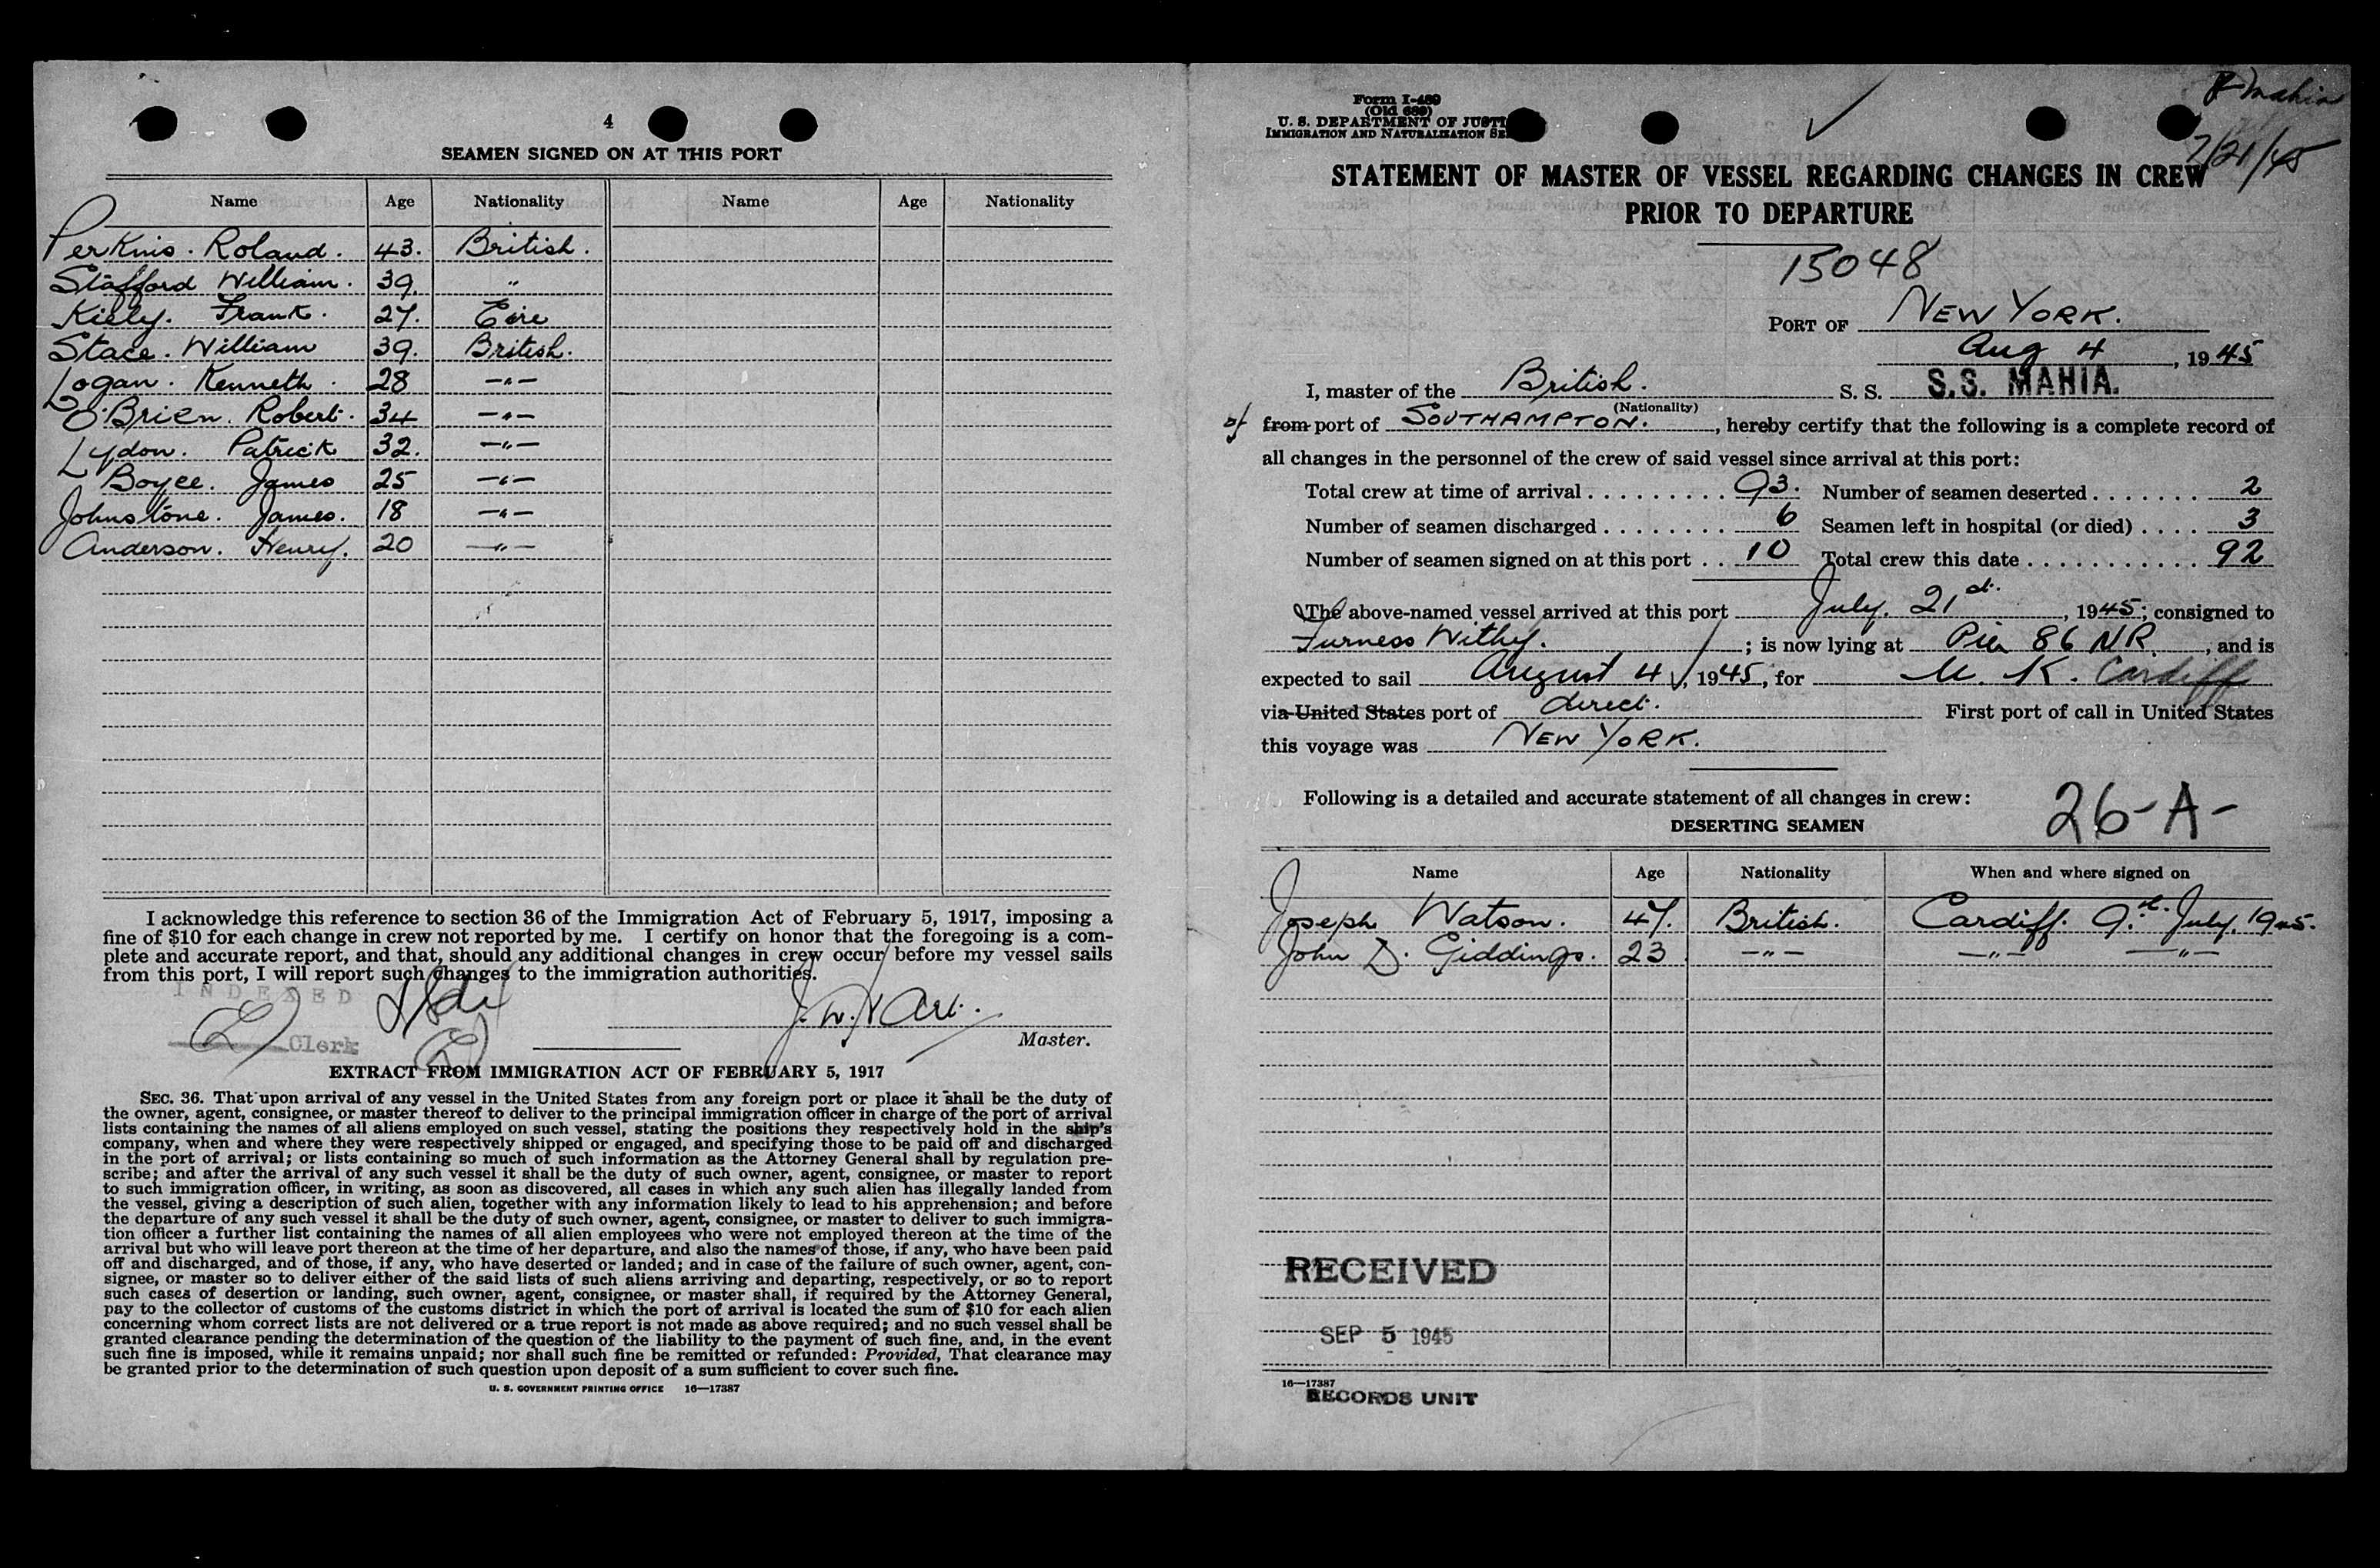 4
SEAMEN SIGNED ON AT THIS PORT
Name Age Nationality Name Age Nationality
Perkins. Roland. 43. British.
Stafford William. 39. "
Kiely. Frank. 27. Eire
Stace. William 39. British.
Logan. Kenneth. 28 -"-
O'Brien. Robert. 34 -"-
Lydon. Patrick 32. -"-
Boyce. James 25 -"-
Johnstone. James. 18 -"-
Anderson. Henry. 20 -"-
I acknowledge this reference to section 36 of the Immigration Act of February 5, 1917, imposing a
fine of $10 for each change in crew not reported by me. I certify on honor that the foregoing is a com-
plete and accurate report, and that, should any additional changes in crew occur before my vessel sails
from this port, I will report such changes to the immigration authorities.
INDEXED
Clerk
Master.
EXTRACT FROM IMMIGRATION ACT OF FEBRUARY 5, 1917
SEC. 36. That upon arrival of any vessel in the United States from any foreign port or place it shall be the duty of
the owner, agent, consignee, or master thereof to deliver to the principal immigration officer in charge of the port of arrival
lists containing the names of all aliens employed on such vessel, stating the positions they respectively hold in the ship's
company, when and where they were respectively shipped or engaged, and specifying those to be paid off and discharged
in the port of arrival; or lists containing so much of such information as the Attorney General shall by regulation pre-
scribe; and after the arrival of any such vessel it shall be the duty of such owner, agent, consignee, or master to report
to such immigration officer, in writing, as soon as discovered, all cases in which any such alien has illegally landed from
the vessel, giving a description of such alien, together with any information likely to lead to his apprehension; and before
the departure of any such vessel it shall be the duty of such owner, agent, consignee, or master to deliver to such immigra-
tion officer a further list containing the names of all alien employees who were not employed thereon at the time of the
arrival but who will leave port thereon at the time of her departure, and also the names of those, if any, who have been paid
off and discharged, and of those, if any, who have deserted or landed; and in case of the failure of such owner, agent, con-
signee, or master so to deliver either of the said lists of such aliens arriving and departing, respectively, or so to report
such cases of desertion or landing, such owner, agent, consignee, or master shall, if required by the Attorney General,
pay to the collector of customs of the customs district in which the port of arrival is located the sum of $10 for each alien
concerning whom correct lists are not delivered or a true report is not made as above required; and no such vessel shall be
granted clearance pending the determination of the question of the liability to the payment of such fine, and, in the event
such fine is imposed, while it remains unpaid; nor shall such fine be remitted or refunded: Provided, That clearance may
be granted prior to the determination of such question upon deposit of a sum sufficient to cover such fine.
U. S. GOVERNMENT PRINTING OFFICE 16—17387
Form I-489
(Old 689)
U. S. DEPARTMENT OF JUSTI
IMMIGRATION AND NATURALIZATION SE
Mahia
7/21/45
STATEMENT OF MASTER OF VESSEL REGARDING CHANGES IN CREW
PRIOR TO DEPARTURE
15048
PORT OF NEW YORK.
Aug 4, 1945
I, master of the British. S. S. S.S. MAHIA.
(Nationality)
of from port of SOUTHAMPTON., hereby certify that the following is a complete record of
all changes in the personnel of the crew of said vessel since arrival at this port:
Total crew at time of arrival . . . . . . . . . 93. Number of seamen deserted . . . . . . . 2
Number of seamen discharged . . . . . . . . 6 Seamen left in hospital (or died) . . . . 3
Number of seamen signed on at this port . . 10 Total crew this date . . . . . . . . . . . 92
The above-named vessel arrived at this port July. 21st., 1945; consigned to
Furness Withy. ; is now lying at Pier 86 NR., and is
expected to sail August 4, 1945, for U. K. Cardiff
via United States port of direct. First port of call in United States
this voyage was NEW YORK.
Following is a detailed and accurate statement of all changes in crew:
26-A-
DESERTING SEAMEN
Name Age Nationality When and where signed on
Joseph Watson. 47. British. Cardiff. 9th. July. 1945.
John D. Giddings. 23 -"- -"- -"-
RECEIVED
SEP 5 1945
16—17387
RECORDS UNIT